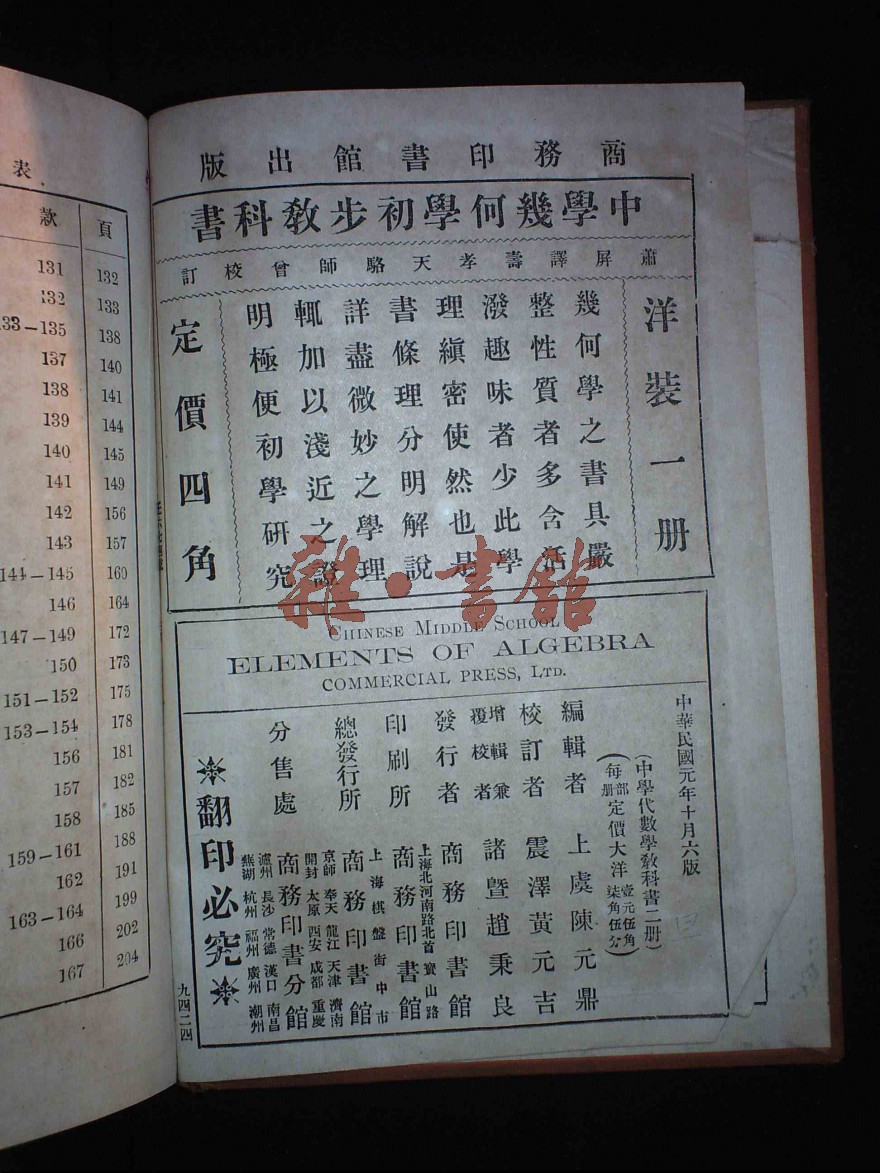 商務印書館出版
中學幾何學初步教科書
蕭屏譯壽孝天駱師曾校訂
洋裝一册
幾何學之書具嚴
整性質者多含活
潑趣味者少此學
理縝密使然也是
書條理分明解說
詳盡微妙之學理
輒加以淺近之證
明極便初學硏究
定價四角
雜·書館
CHINESE MIDDLE SCHOOL
ELEMENTS OF ALGEBRA
COMMERCIAL PRESS, LTD.
中華民國元年十月六版
(中學代數學教科書二册)
(每部定價大洋壹元伍角
每册定價大洋柒角伍分)
編輯者 上虞陳元鼎
校訂者 震澤黃元吉
增輯兼覆校者 諸暨趙秉良
發行者 商務印書館
印刷所 上海北河南路北首寶山路 商務印書館
總發行所 上海棋盤街中市 商務印書館
分售處 京師 奉天 龍江 天津 濟南
開封 太原 西安 成都 重慶
商務印書分館
瀘州 長沙 常德 漢口 南昌
蕪湖 杭州 福州 廣州 潮州
翻印必究
九四二四
表
款 頁
131 132
132 133
133–135 138
137 140
138 141
139 144
140 145
141 149
142 156
143 157
144–145 160
146 164
147–149 172
150 173
151–152 175
153–154 178
156 181
157 182
158 185
159–161 188
162 191
163–164 199
166 202
167 204